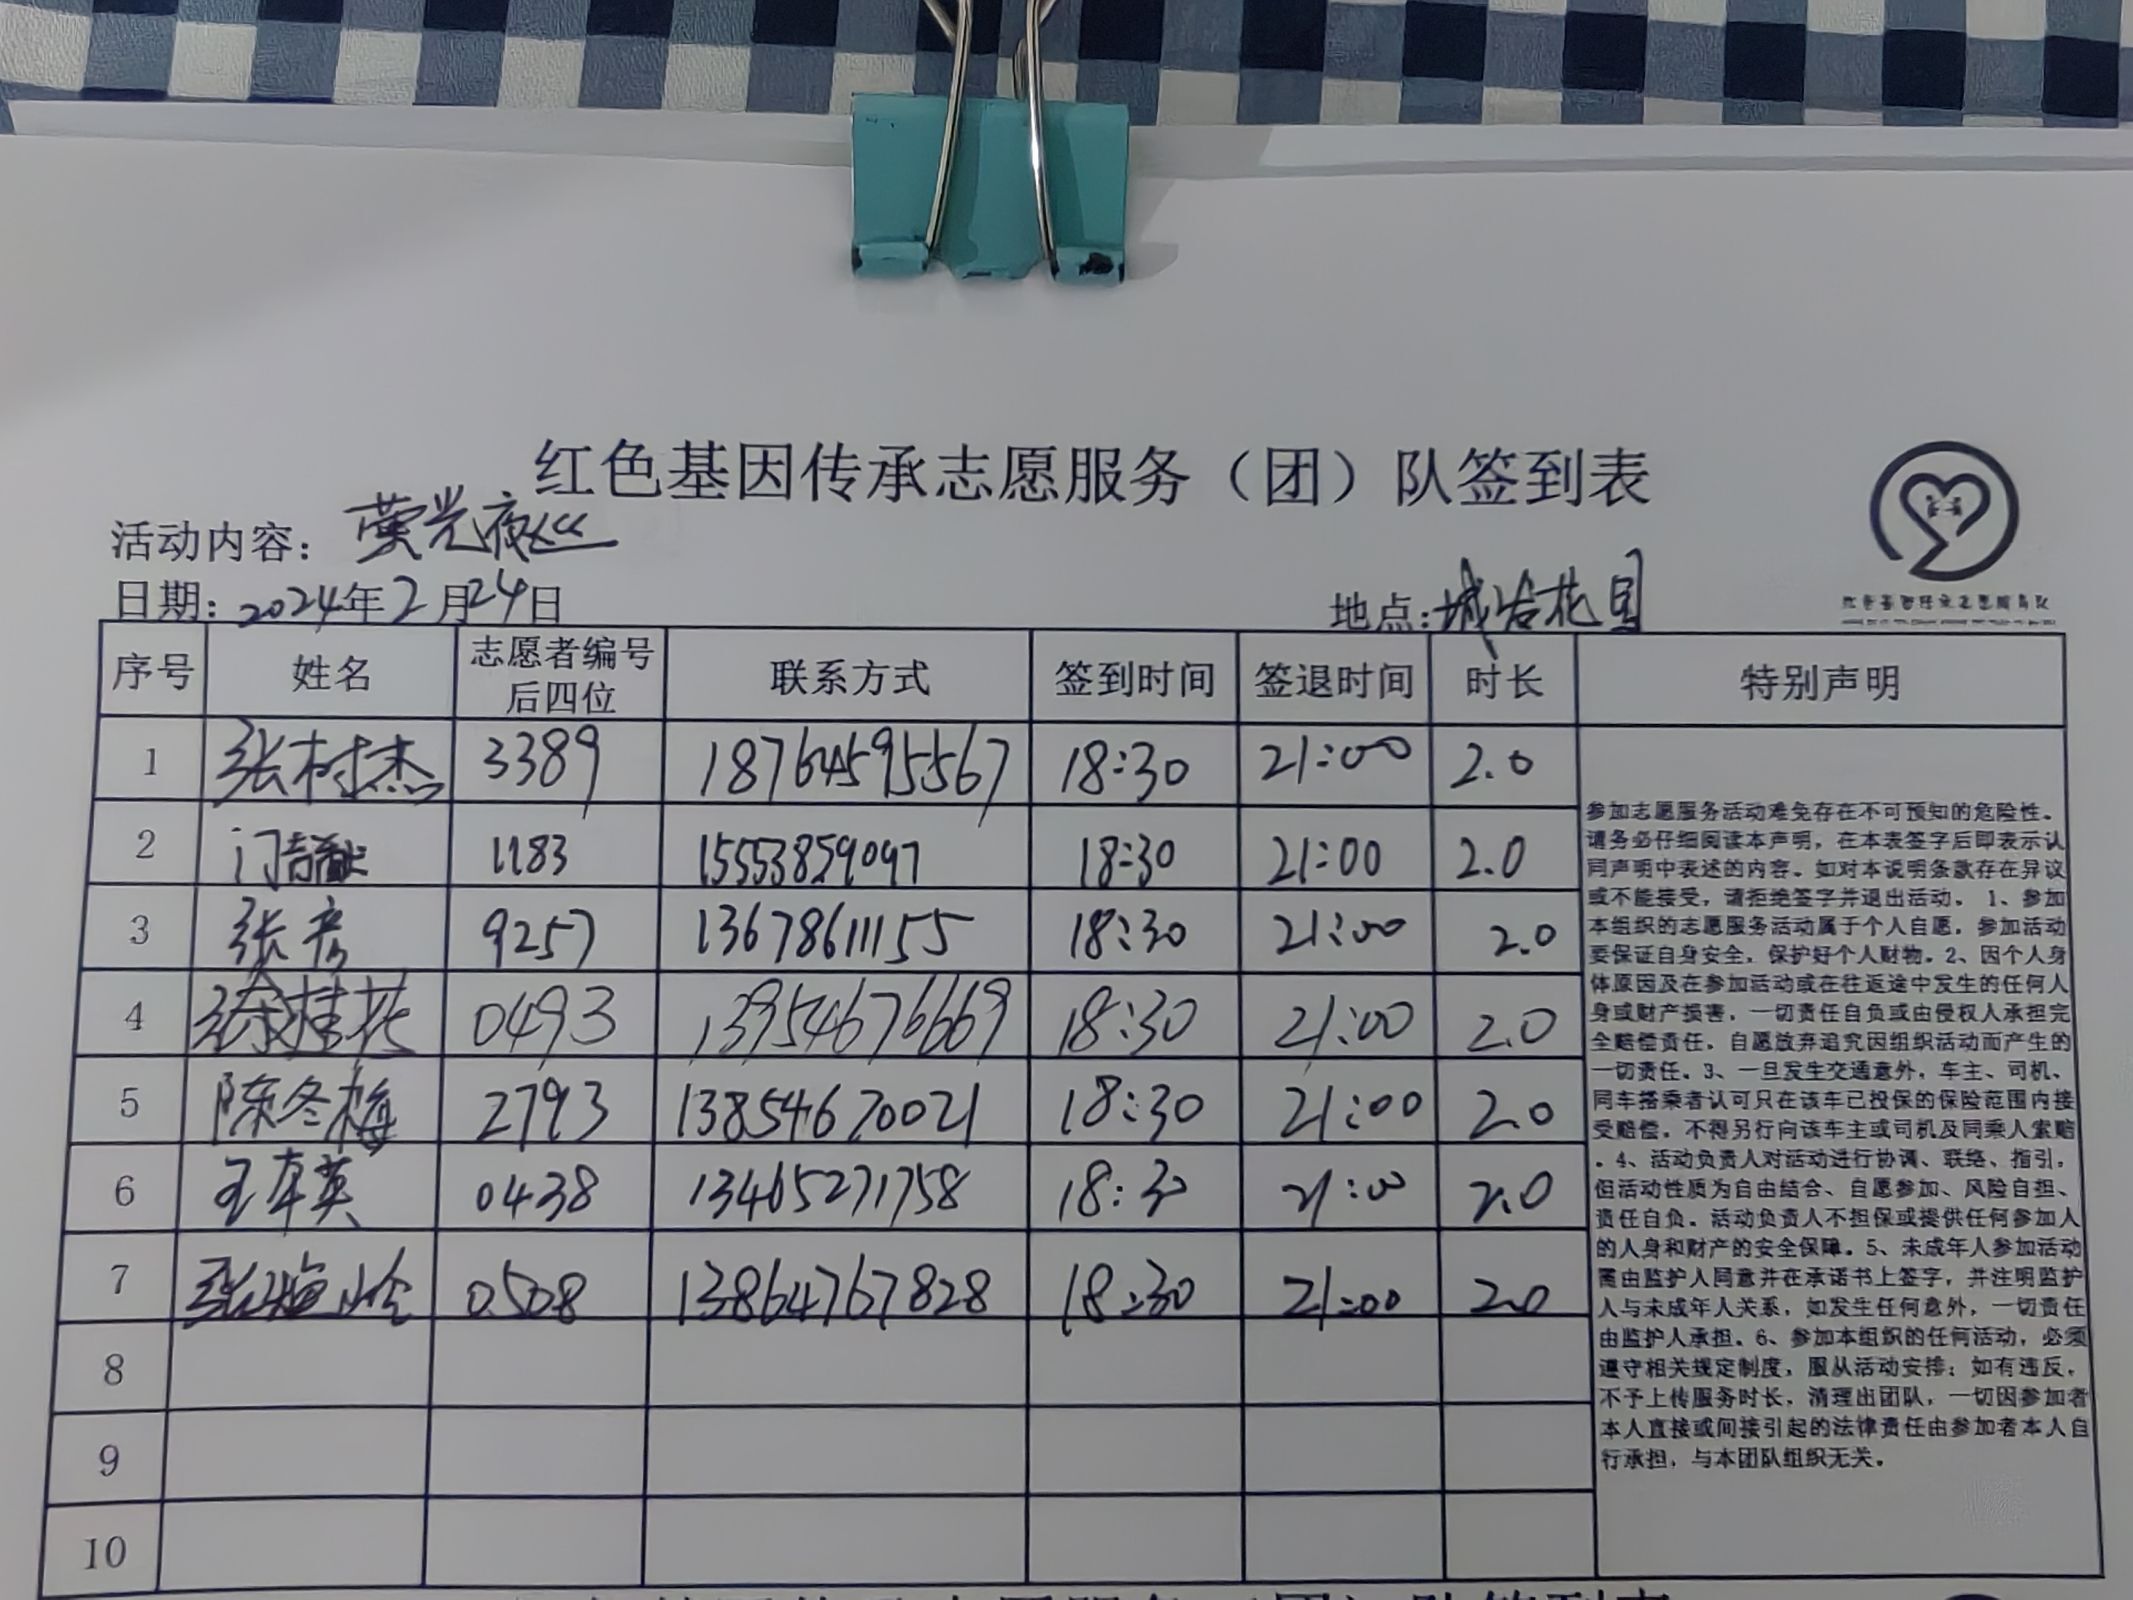 红色基因传承志愿服务（团）队签到表
活动内容：荧光夜巡
日期：2024年2月24日
地点：城洽花园
序号 姓名 志愿者编号后四位 联系方式 签到时间 签退时间 时长 特别声明
1 张树杰 3389 18764595567 18:30 21:00 2.0
2 门 1183 15553859097 18:30 21:00 2.0
3 张彦 9257 13678611155 18:30 21:00 2.0
4 徐桂花 0493 13954676669 18:30 21:00 2.0
5 陈冬梅 2793 13854670021 18:30 21:00 2.0
6 王春英 0438 13465271758 18:30 21:00 2.0
7 张梅岭 0508 13864767828 18:30 21:00 2.0
8
9
10
参加志愿服务活动难免存在不可预知的危险性。
请务必仔细阅读本声明，在本表签字后即表示认
同声明中表述的内容。如对本说明条款存在异议
或不能接受，请拒绝签字并退出活动。1、参加
本组织的志愿服务活动属于个人自愿，参加活动
要保证自身安全，保护好个人财物。2、因个人身
体原因及在参加活动或在往返途中发生的任何人
身或财产损害，一切责任自负或由侵权人承担完
全赔偿责任，自愿放弃追究因组织活动而产生的
一切责任。3、一旦发生交通意外，车主、司机、
同车搭乘者认可只在该车已投保的保险范围内接
受赔偿。不得另行向该车主或司机及同乘人索赔
。4、活动负责人对活动进行协调、联络、指引，
但活动性质为自由结合、自愿参加、风险自担、
责任自负。活动负责人不担保或提供任何参加人
的人身和财产的安全保障。5、未成年人参加活动
需由监护人同意并在承诺书上签字，并注明监护
人与未成年人关系，如发生任何意外，一切责任
由监护人承担。6、参加本组织的任何活动，必须
遵守相关规定制度，服从活动安排；如有违反，
不予上传服务时长，清理出团队，一切因参加者
本人直接或间接引起的法律责任由参加者本人自
行承担，与本团队组织无关。